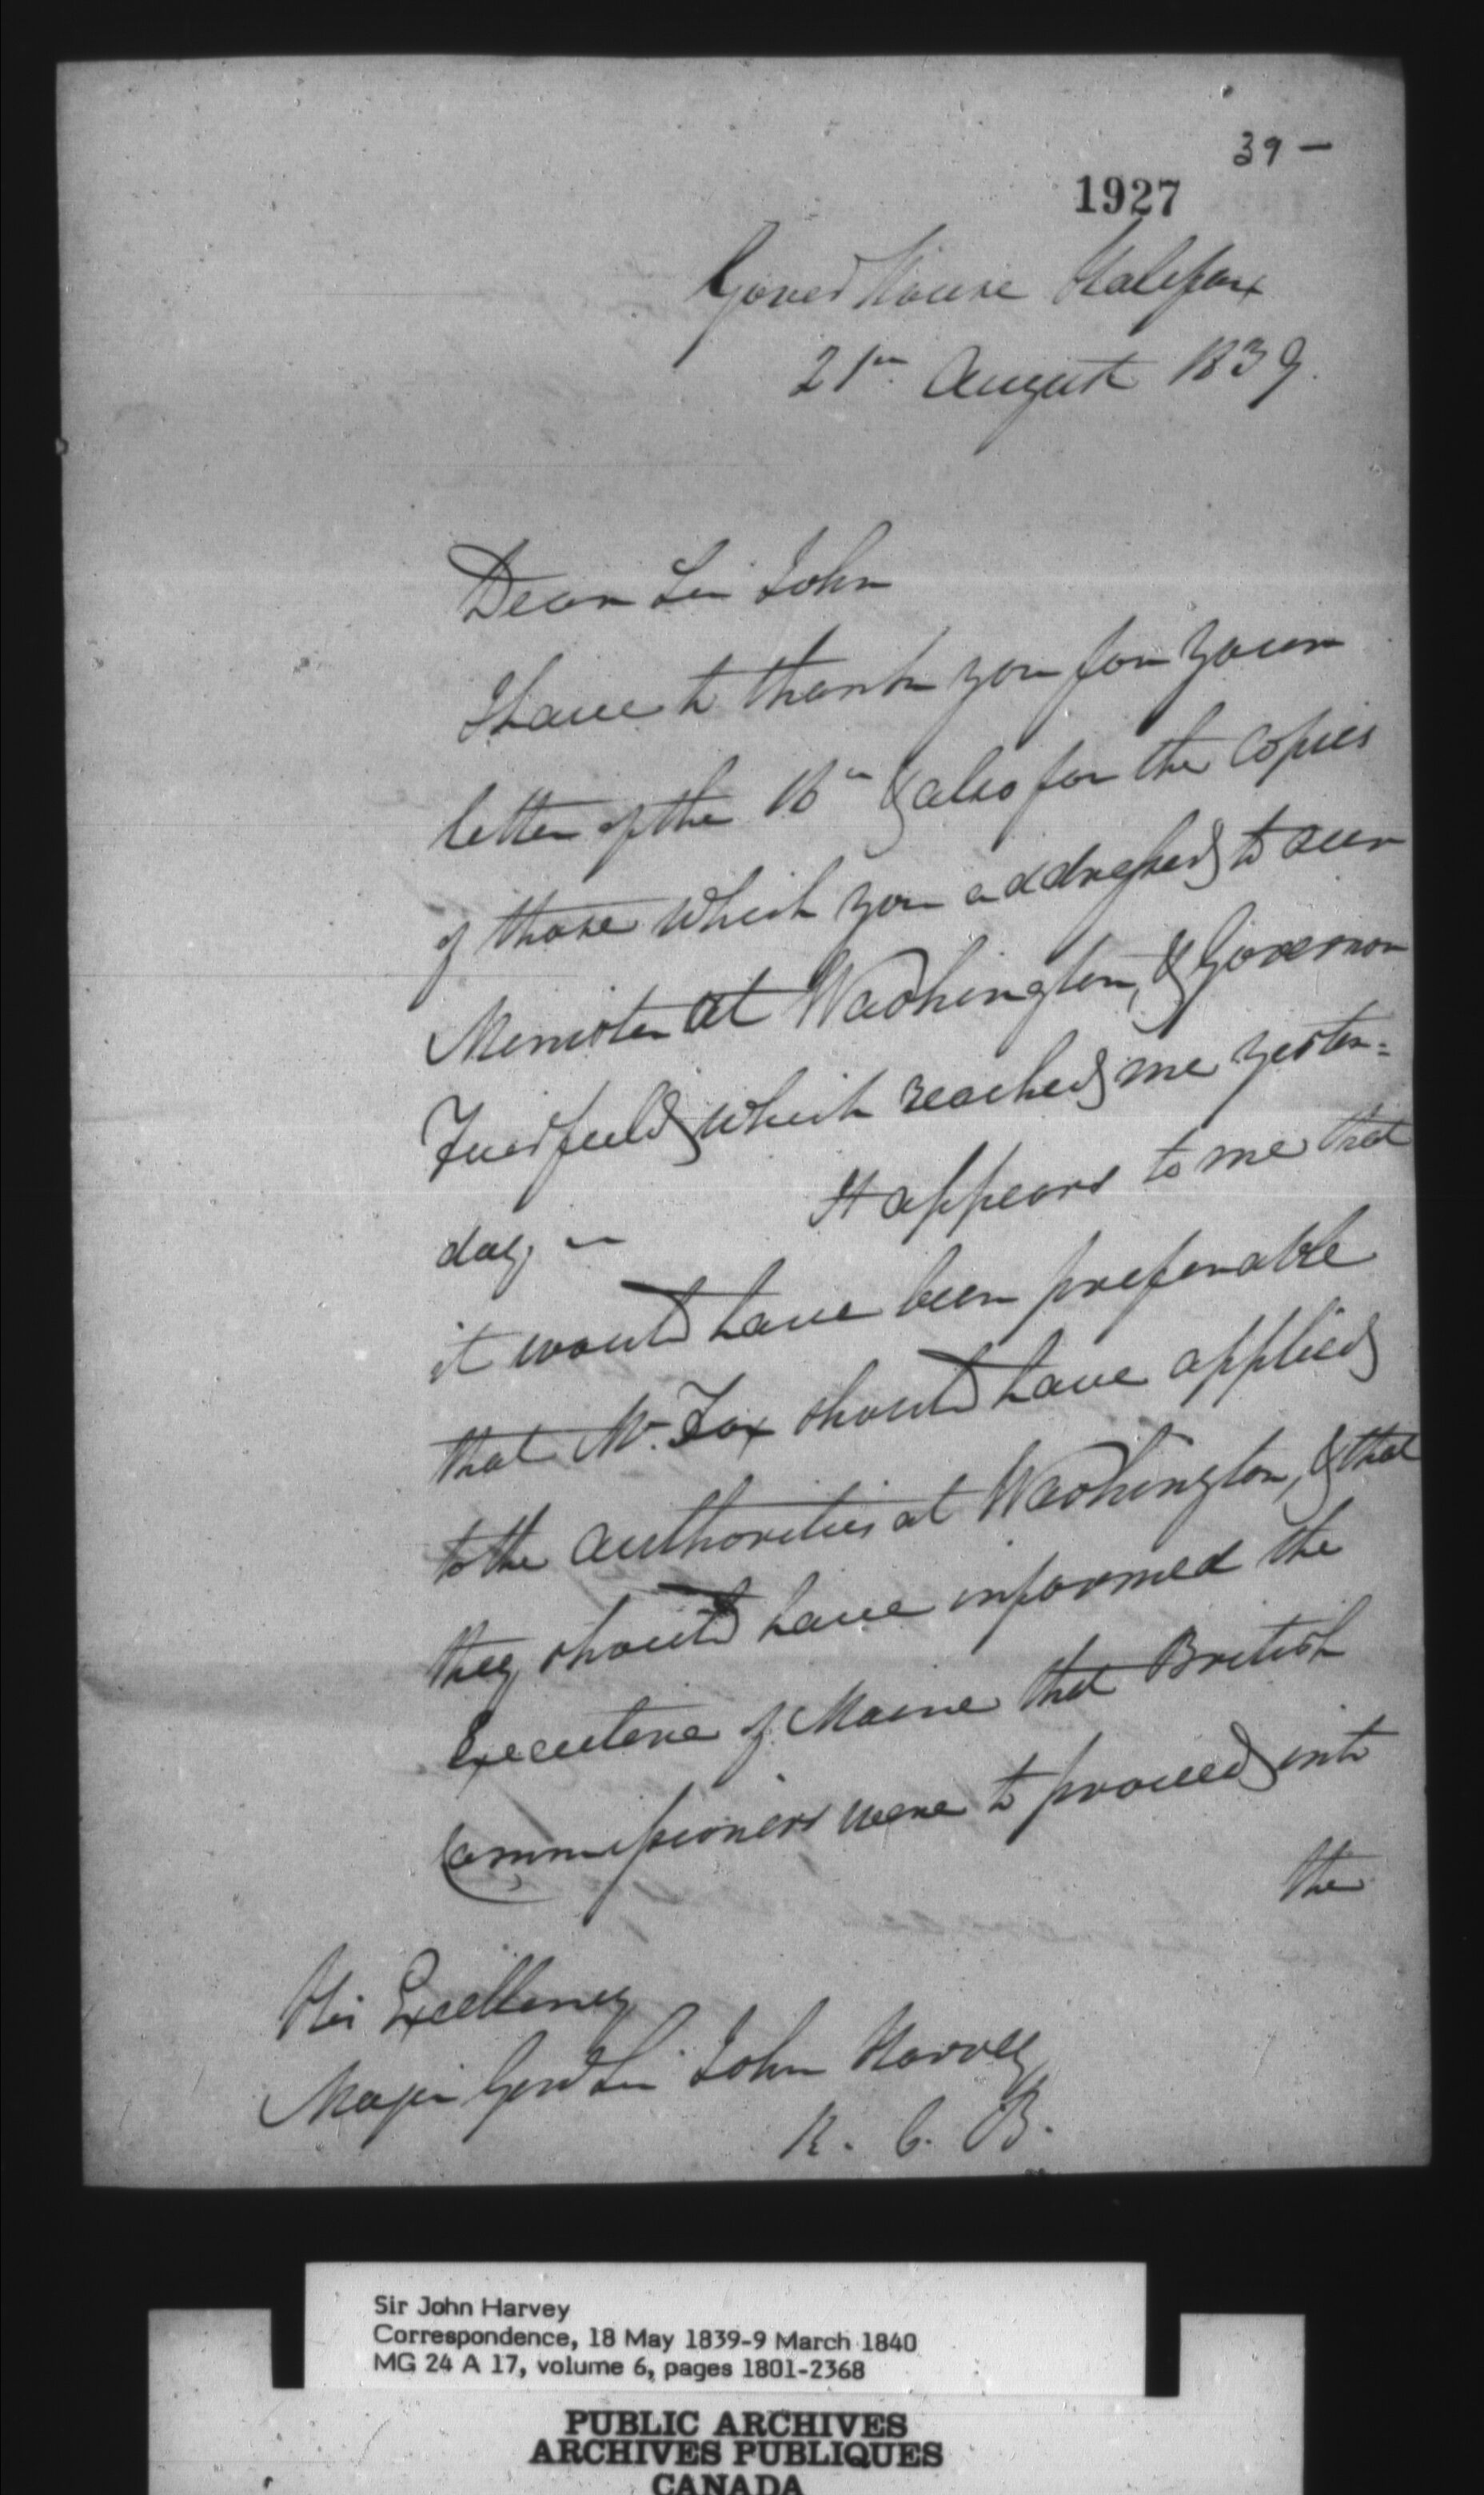 39 —
1927
Gover House Halifax
21st August 1839.
Dear Sir John
I have to thank you for your
letter of the 16th & also for the copies
of those which you addressed to our
Minister at Washington, & Governor
Fairfield, which reached me yester=
day, —
It appears to me that
it would have been preferable
that Mr. Fox should have applied
to the authorities at Washington, & that
they should have informed the
Executive of Maine that British
Commissioners were to proceed into
the
His Excellency
Major Genl Sir John Harvey
K. C. B.
Sir John Harvey
Correspondence, 18 May 1839-9 March 1840
MG 24 A 17, volume 6, pages 1801-2368
PUBLIC ARCHIVES
ARCHIVES PUBLIQUES
CANADA